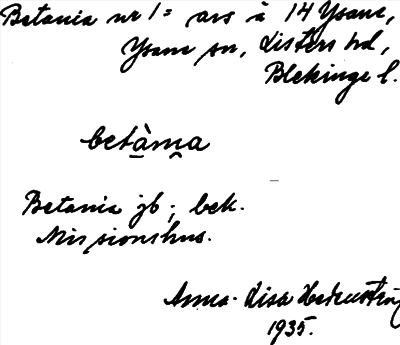 Betania nr 1 = avs å 14 Ysane,
Ysane sn, Listers hd,
Blekinge l.
betàna
Betania jb; bek.
Missionshus.
Anna-Lisa
1935.